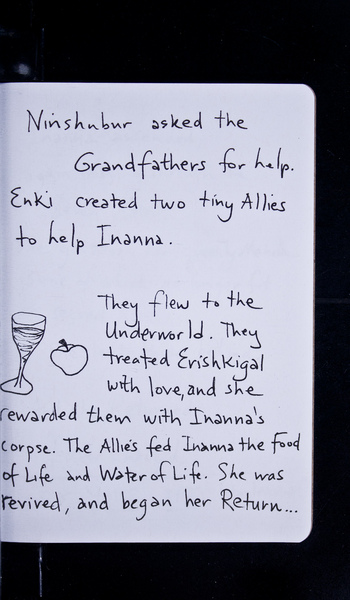 Ninshubur asked the
Grandfathers for help.
Enki created two tiny Allies
to help Inanna.
They flew to the
Underworld. They
treated Erishkigal
with love, and she
rewarded them with Inanna's
corpse. The Allies fed Inanna the Food
of Life and Water of Life. She was
revived, and began her Return...